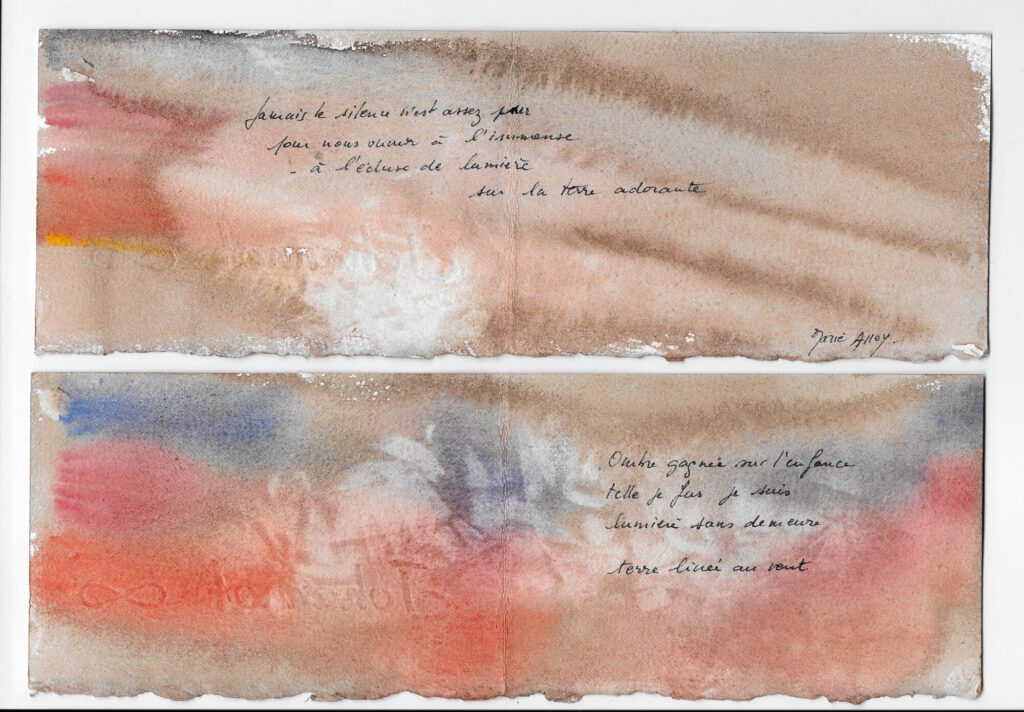 Jamais le silence n'est assez pur
pour nous ouvrir à l'immense
- à l'écluse de lumière
sur la terre adorante
Marie Alloy.
Ombre gagnée sur l'enfance
telle je fus je suis
lumière sans demeure
terre au vent